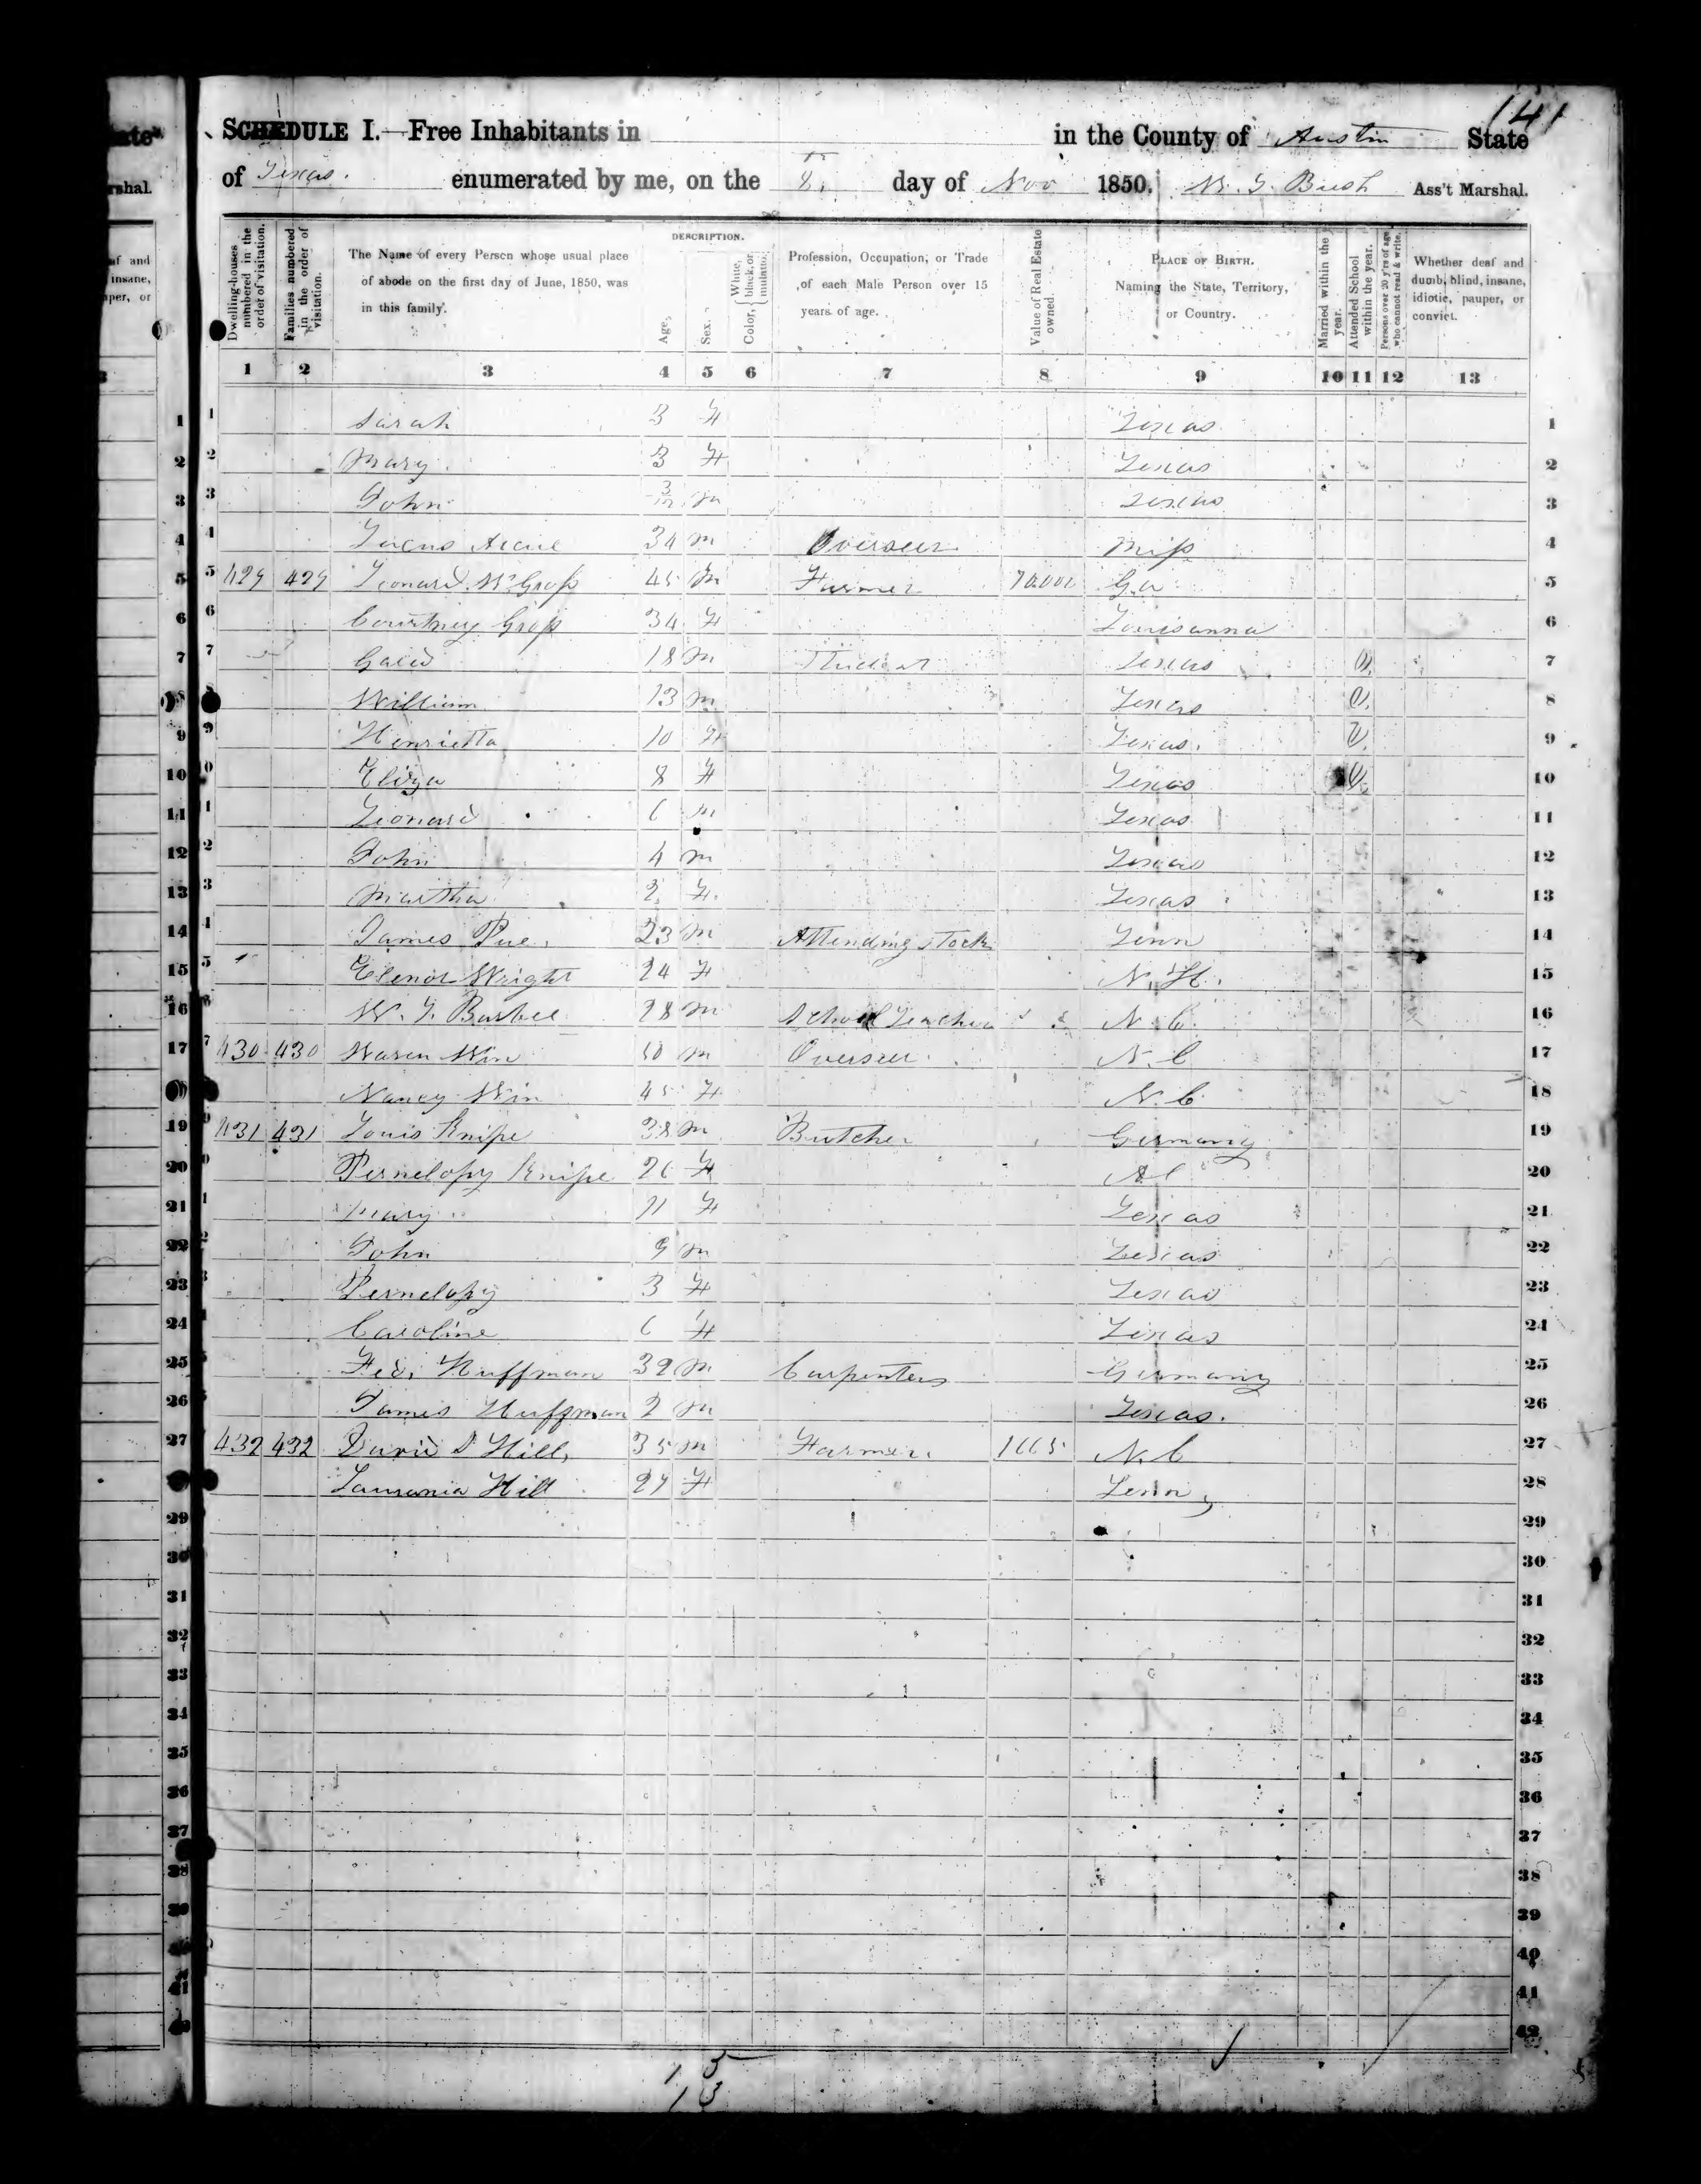 141
SCHEDULE I.—Free Inhabitants in in the County of Austin State
of Texas. enumerated by me, on the 8 day of Nov 1850. Bush Ass't Marshal.
Dwelling-houses numbered in the order of visitation.
Families numbered in the order of visitation.
The Name of every Person whose usual place of abode on the first day of June, 1850, was in this family.
DESCRIPTION.
Age,
Sex.
Color, { White, black, or mulatto.
Profession, Occupation, or Trade of each Male Person over 15 years of age.
Value of Real Estate owned.
PLACE OF BIRTH. Naming the State, Territory, or Country.
Married within the year.
Attended School within the year.
Persons over 20 y'rs of age who cannot read & write.
Whether deaf and dumb, blind, insane, idiotic, pauper, or convict.
1 2 3 4 5 6 7 8 9 10 11 12 13
1 Sarah 3 F Texas 1
2 Mary 3 F Texas 2
3 John 3/12 m Texas 3
4 34 m Overseer Miss 4
5 429 429 Leonard W Gross 45 m Farmer Ga 5
6 Courtney Gross 34 F Louisanna 6
7 18 m Student Texas 7
8 William 13 m Texas 8
9 Henrietta 10 F Texas. 9
10 Eliza 8 F Texas 10
11 Leonard 6 m Texas 11
12 John 4 m Texas 12
13 Martha 2 F. Texas 13
14 James Pue 23 m Attending stock Tenn 14
15 Elenor Wright 24 F N. H. 15
16 W. Barbee 28 m School Teacher N. C. 16
17 430 430 Waren Win 50 m Overseer. N. C 17
Nancy Win 45 F N. C 18
19 431 431 Louis Knipe 38 m Butcher Germany 19
20 Pernelopy Knipe 26 F 20
21 Mary 11 F Texas 21
22 John 9 m Texas 22
23 Pernelopy 3 F Texas 23
24 Caroline 6 F Texas 24
25 Fed. Huffman 32 m Carpenters Germany 25
26 James Huffman 2 m Texas. 26
27 432 432 David S Hill, 35 m Farmer. 1665 N. C 27
Hill 27 F Tenn 28
29 29
30 30
31 31
32 32
33 33
34 34
35 35
36 36
37 37
38 38
39 39
40 40
41 41
42 42
15
13